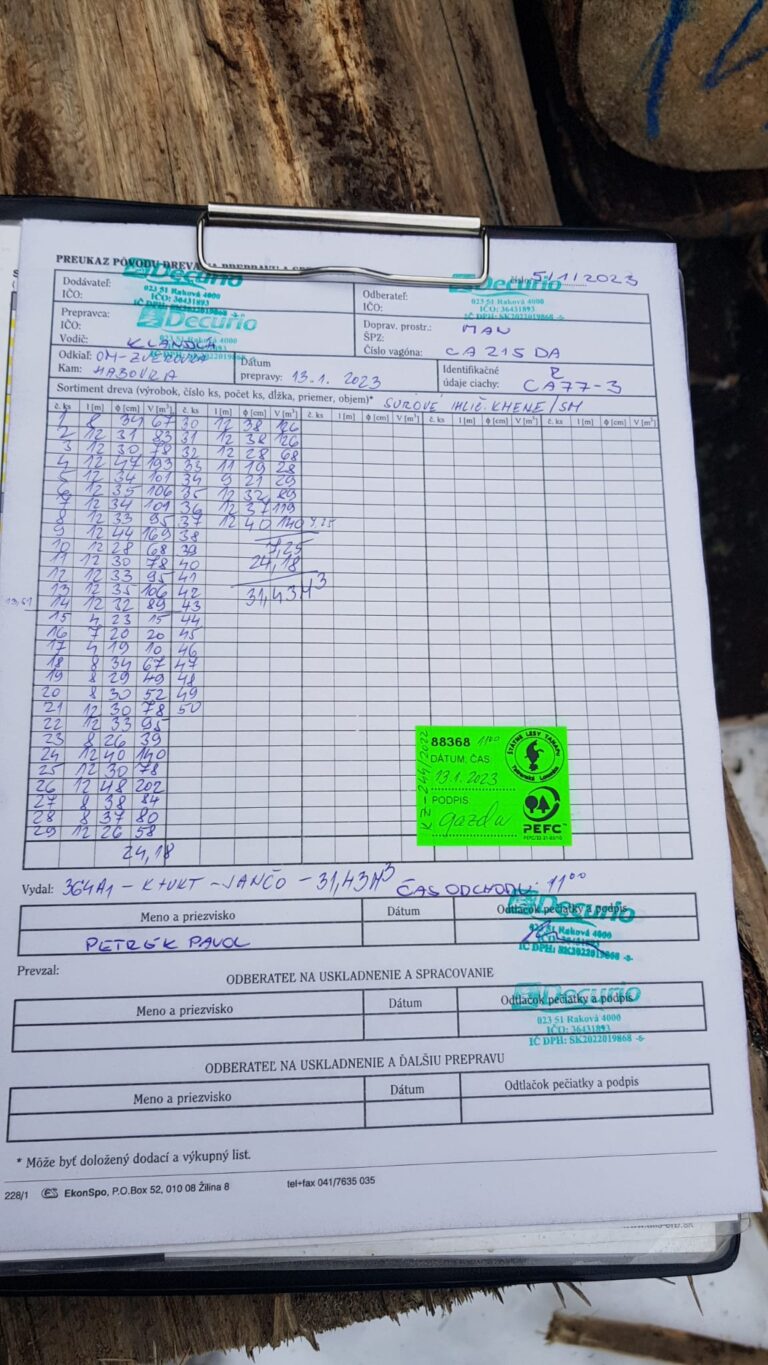 PREUKAZ PÔVODU DREVA NA PREPRAVU A
5/1/2023
Dodávateľ:
IČO:
Decurio
023 51 Raková 4000
IČO: 36431893
IČ DPH: SK2022019868 -6-
Odberateľ:
IČO:
Decurio
023 51 Raková 4000
IČO: 36431893
IČ DPH: SK2022019868 -6-
Prepravca:
IČO:
Vodič: KLANDUA
Decurio
Doprav. prostr.: MAN
ŠPZ:
Číslo vagóna: CA 215 DA
Odkiaľ: OM-ZVEROVKA
Kam: HABOVKA
Dátum
prepravy: 13.1. 2023
Identifikačné
údaje ciachy: R
CA77-3
Sortiment dreva (výrobok, číslo ks, počet ks, dĺžka, priemer, objem)* SUROVÉ IHLIČ. KMENE/SM
č. ks l [m] ϕ [cm] V [m³] č. ks l [m] ϕ [cm] V [m³] č. ks l [m] ϕ [cm] V [m³] č. ks l [m] ϕ [cm] V [m³] č. ks l [m] ϕ [cm] V [m³]
1 8 34 67 30 12 38 126
2 12 31 83 31 12 38 126
3 12 30 78 32 12 28 68
4 12 47 193 33 11 19 28
5 12 34 101 34 9 21 29
6 12 35 106 35 12 32 89
7 12 34 101 36 12 37 119
8 12 33 95 37 12 40 140 7,25
9 12 44 169 38
10 12 28 68 39 7,25
11 12 30 78 40 24,18
12 12 33 95 41
13 12 35 106 42 31,43 M³
13,61 14 12 32 89 43
15 4 23 15 44
16 7 20 20 45
17 4 19 10 46
18 8 34 67 47
19 8 29 49 48
20 8 30 52 49
21 12 30 78 50
22 12 33 95
23 8 26 39
24 12 40 140
25 12 30 78
26 12 48 202
27 8 38 84
28 8 37 80
29 12 26 58
24,18
KZ-244/2022
88368 11⁰⁰
DÁTUM, ČAS
13.1.2023
PODPIS
gazda
ŠTÁTNE LESY TANAPU
Tatranská Lomnica
PEFC
Vydal: 364A1 - K+UKT - JANČO - 31,43 M³ ČAS ODCHODU: 11⁰⁰
Meno a priezvisko Dátum Odtlačok pečiatky a podpis
PETRÉK PAVOL
Decurio
023 51 Raková 4000
IČO: 36431893
IČ DPH: SK2022019868 -6-
Prevzal:
ODBERATEĽ NA USKLADNENIE A SPRACOVANIE
Meno a priezvisko Dátum Odtlačok pečiatky a podpis
Decurio
023 51 Raková 4000
IČO: 36431893
IČ DPH: SK2022019868 -6-
ODBERATEĽ NA USKLADNENIE A ĎALŠIU PREPRAVU
Meno a priezvisko Dátum Odtlačok pečiatky a podpis
* Môže byť doložený dodací a výkupný list.
228/1 EkonSpo, P.O.Box 52, 010 08 Žilina 8 tel+fax 041/7635 035